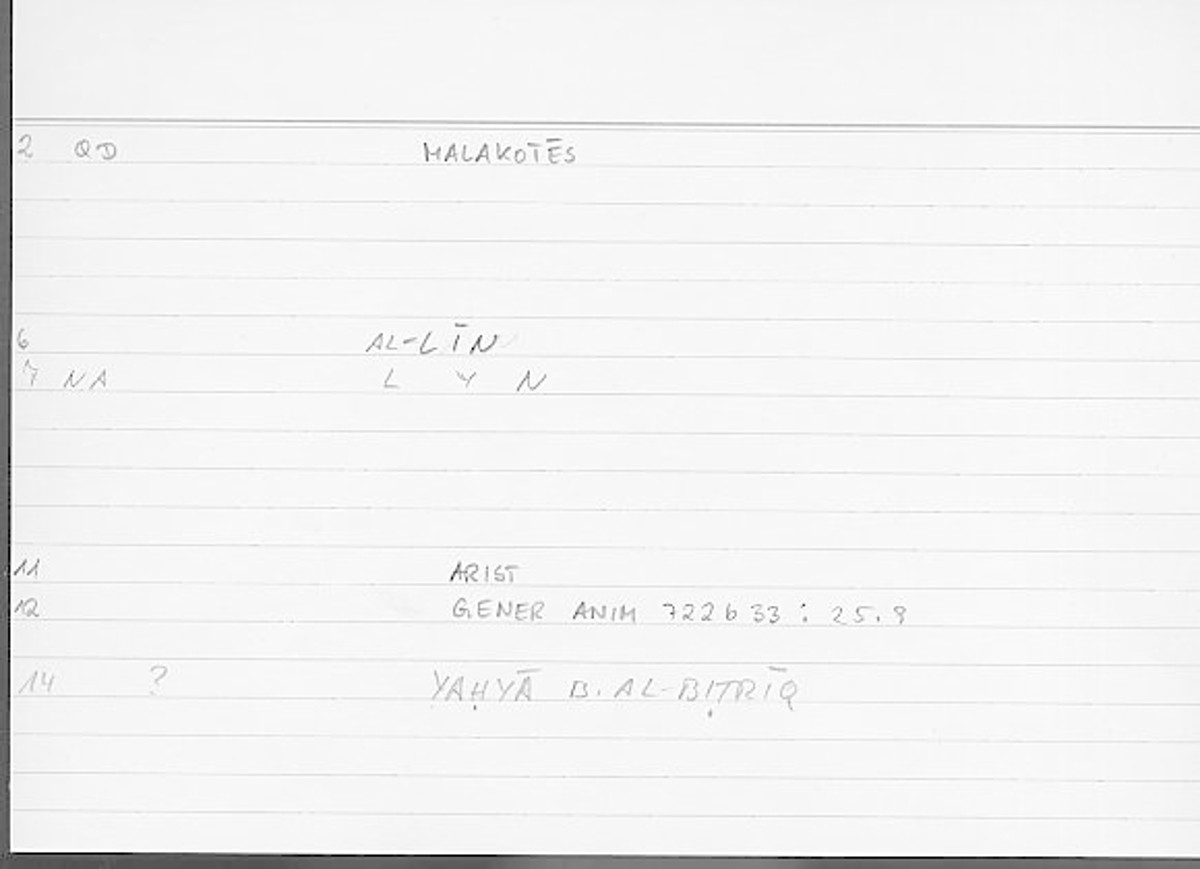 2 QD MALAKOTĒS
6 AL-LĪN
7 NA L Y N
11 ARIST
12 GENER ANIM 722b33 : 25.9
14 ? YAḤYĀ B. AL-BIṬRĪQ